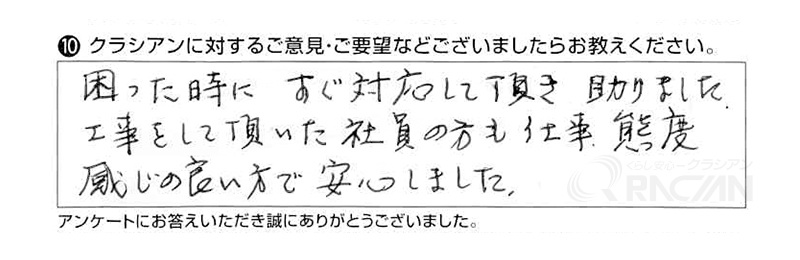 ⑩ クラシアンに対するご意見・ご要望などございましたらお教えください。
困った時に すぐ対応して頂き 助りました.
工事をして頂いた社員の方も仕事.態度
感じの良い方で安心しました.
くらし安心 クラシアン
QRACIAN
アンケートにお答えいただき誠にありがとうございました。